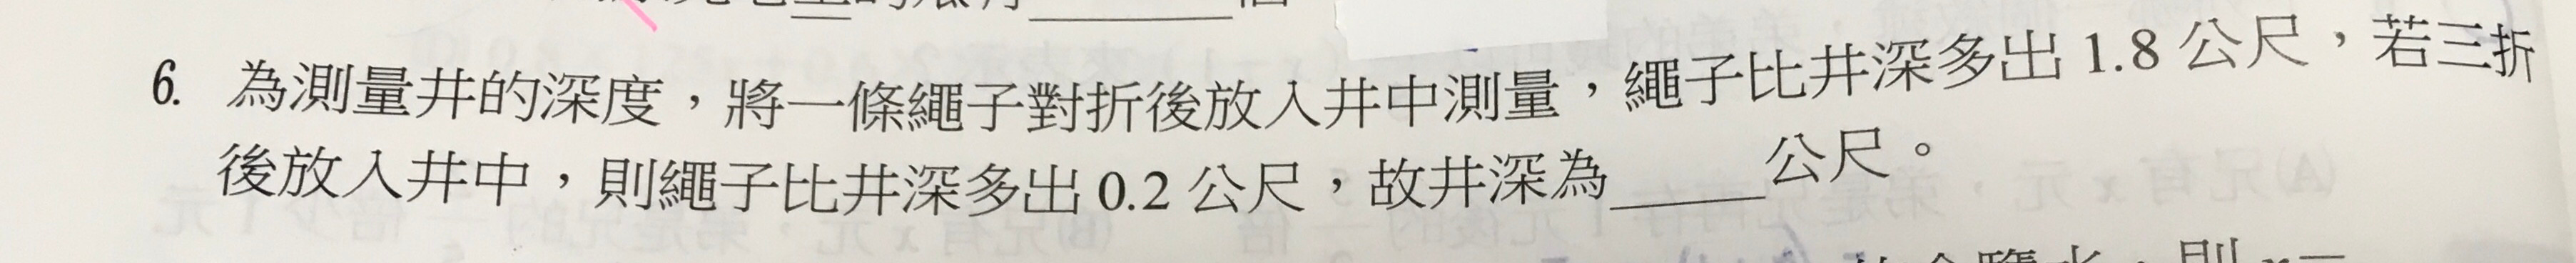 6. 為測量井的深度，將一條繩子對折後放入井中測量，繩子比井深多出 1.8 公尺，若三折
後放入井中，則繩子比井深多出 0.2 公尺，故井深為_____公尺。